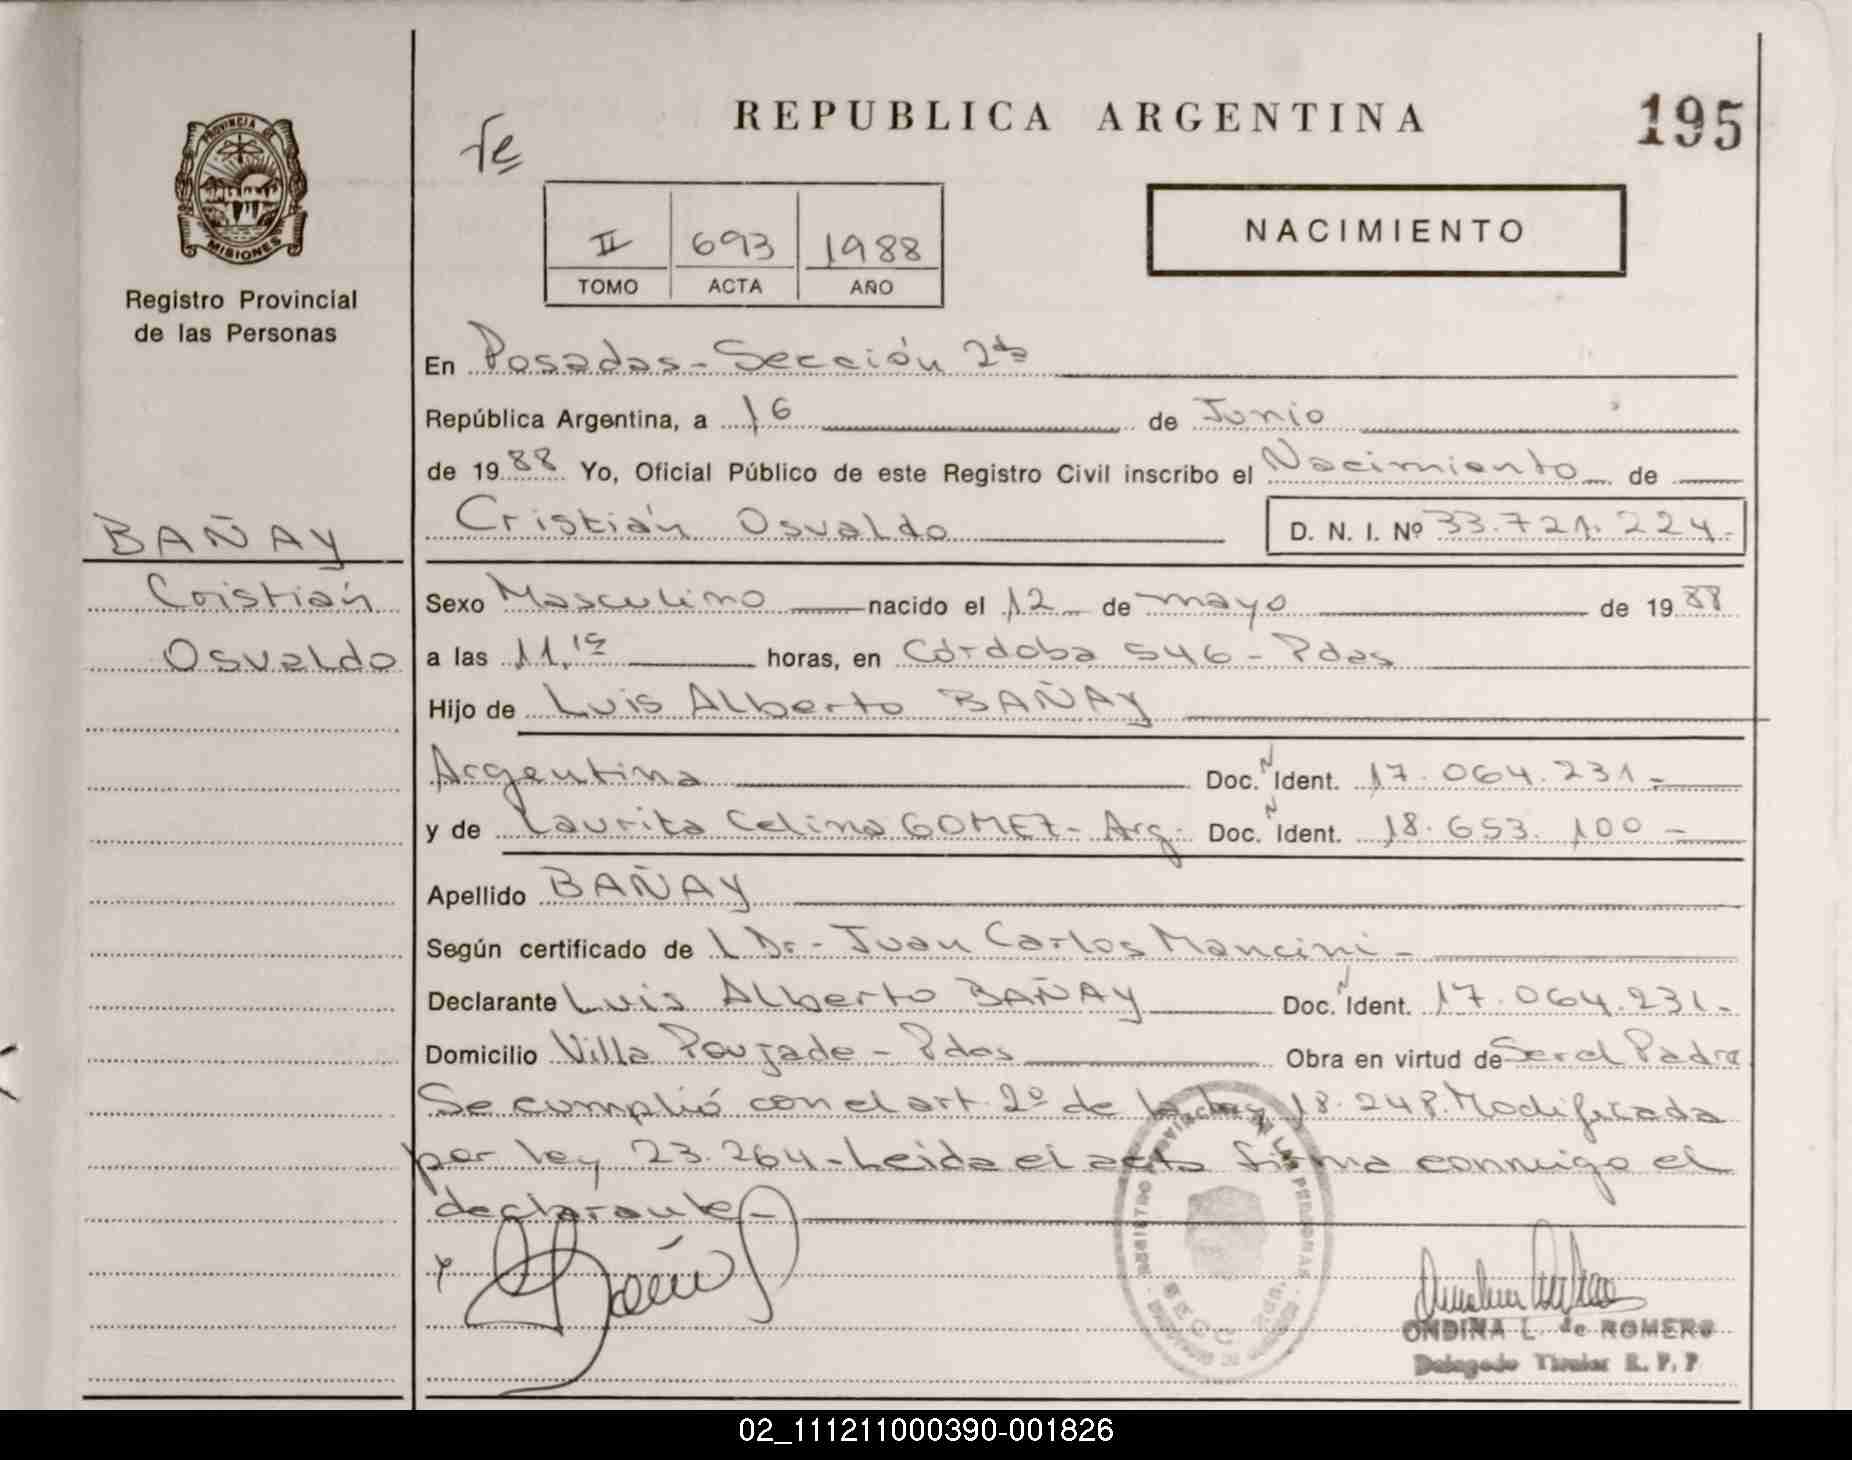 REPUBLICA ARGENTINA
195
PROVINCIA DE
MISIONES
Registro Provincial
de las Personas
II 693 1988
TOMO ACTA AÑO
NACIMIENTO
En Posadas - Sección 2da
República Argentina, a 16 de Junio
de 1988 Yo, Oficial Público de este Registro Civil inscribo el Nacimiento de
BAÑAY
Cristián
Osvaldo
Cristián Osvaldo D. N. I. Nº 33.721.224.-
Sexo Masculino nacido el 12 de mayo de 1988
a las 11.15 horas, en Córdoba 546 - Pdas
Hijo de Luis Alberto BAÑAY
Argentina Doc. N Ident. 17.064.231.-
y de Laurita Celina GOMEZ - Arg. Doc. N Ident. 18.653.100 -
Apellido BAÑAY
Según certificado de l Dr.- Juan Carlos Mancini -
Declarante Luis Alberto BAÑAY Doc. N Ident. 17.064.231.-
Domicilio Villa Poujade - Pdas Obra en virtud de Ser el Padre
Se cumplió con el art. 2º de la ley 18.248. Modificada
por ley 23.264 - Leida el acta firma conmigo el
declarante -
ONDINA L. de ROMERO
Delegado Titular R. P. P
02_111211000390-001826